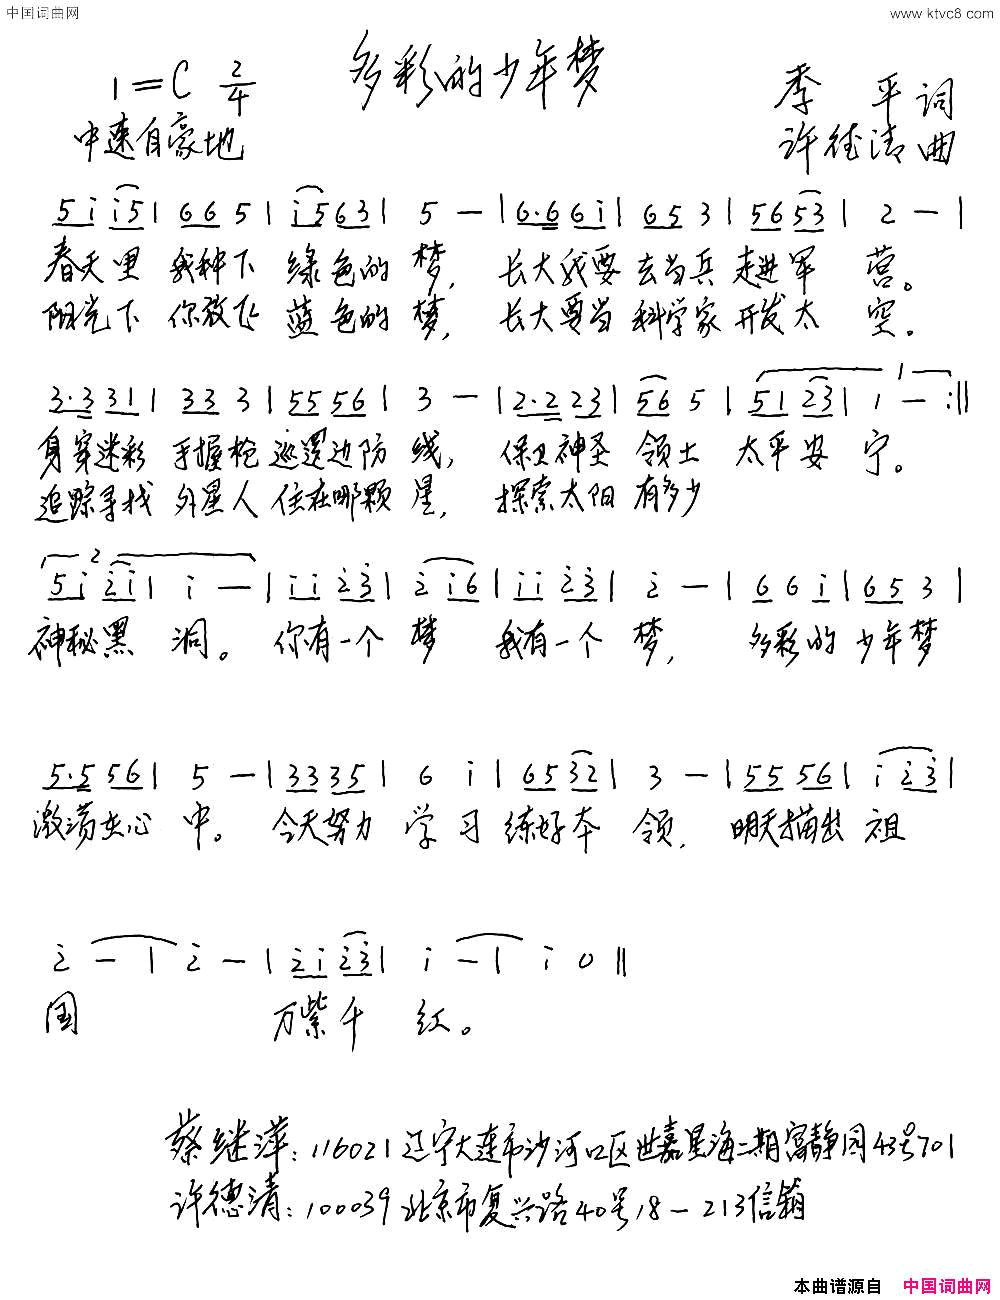 中国词曲网
www.ktvc8.com
多彩的少年梦
1=C 2/4
季 平 词
中速自豪地
许德清 曲
5 i i5 | 6 6 5 | i 5 6 3 | 5 — | 6·6 6 i | 6 5 3 | 5 6 53 | 2 — |
春天里 我种下 绿色的 梦, 长大我要 去当兵 走进军 营。
阳光下 你放飞 蓝色的 梦, 长大要当 科学家 开发太 空。
3·3 3 1 | 3 3 3 | 5 5 5 6 | 3 — | 2·2 2 3 | 56 5 | 5 1 23 | 1 — :||
身穿迷彩 手握枪 巡逻边防 线, 保卫神圣 领土 太平安 宁。
追踪寻找 外星人 住在哪颗 星, 探索太阳 有多少
5 i 2 i | i — | i i 2 3 | 2 i6 | i i 2 3 | 2 — | 6 6 i | 6 5 3 |
神秘黑 洞。 你有一个 梦 我有一个 梦, 多彩的 少年梦
5·5 5 6 | 5 — | 3 3 3 5 | 6 i | 6 5 32 | 3 — | 5 5 5 6 | i 2 3 |
激荡在心 中。 今天努力 学习 练好本 领, 明天描出 祖
2 — | 2 — | 2 i 2 3 | i — | i 0 ||
国 万紫千 红。
蔡继萍:116021 辽宁大连市沙河口区世嘉星海二期富静园43号701
许德清:100039 北京市复兴路40号18-213信箱
本曲谱源自 中国词曲网